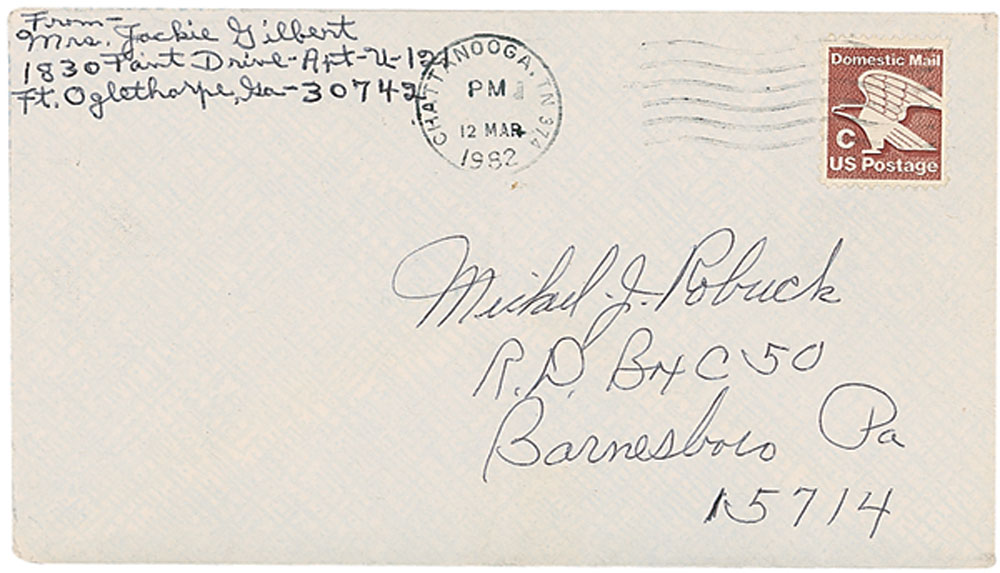 From-
Mrs. Jackie Gilbert
1830 Pant Drive-Apt-U-121
Ft. Oglethorpe, Ga-30742
CHATTANOOGA, TN 374
PM
12 MAR
1982
Domestic Mail
C
US Postage
Michael J. Robuck
R.D. Bx C50
Barnesboro Pa
15714